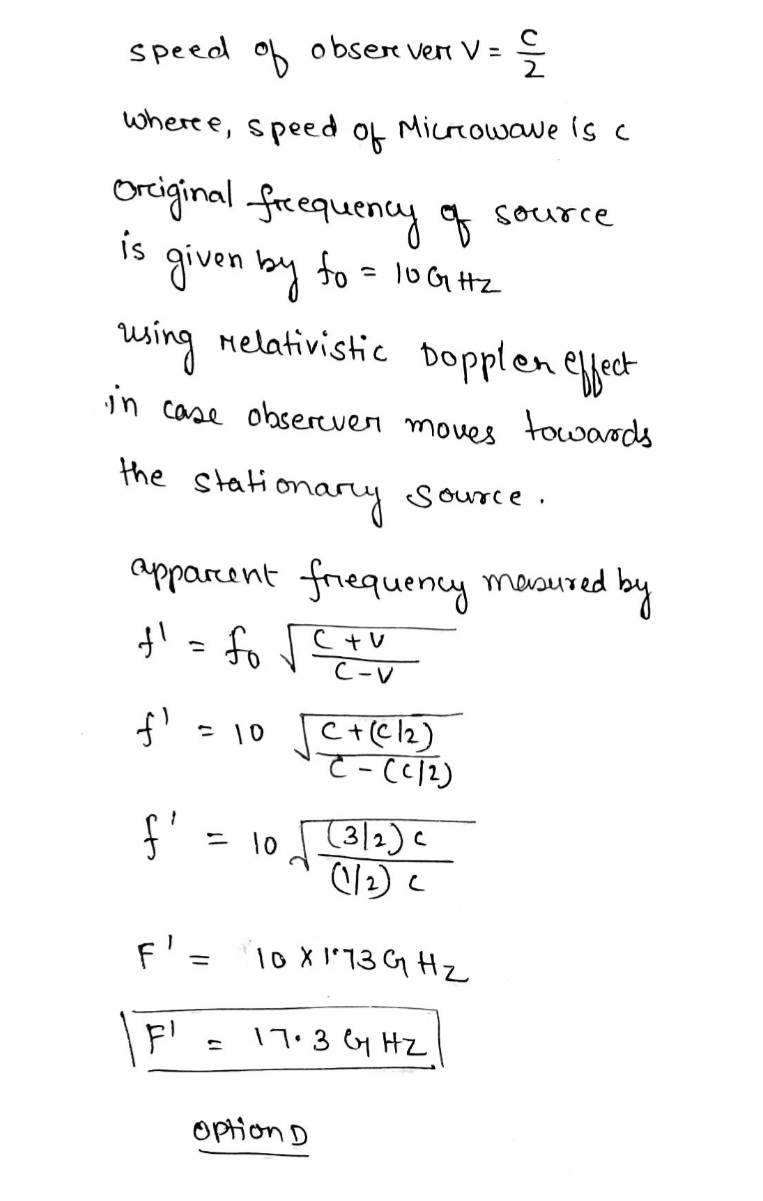 speed of observer V = c/2
where, speed of Microwave is c
Original frequency of source
is given by f₀ = 10 GHz
using relativistic Doppler effect
in case observer moves towards
the stationary source.
apparent frequency measured by
f' = f₀ √(C+V / C-V)
f' = 10 √(C+(C/2) / C-(C/2))
f' = 10 √((3/2) c / (1/2) c)
F' = 10 X 1.73 GHz
F' = 17.3 GHz
option D